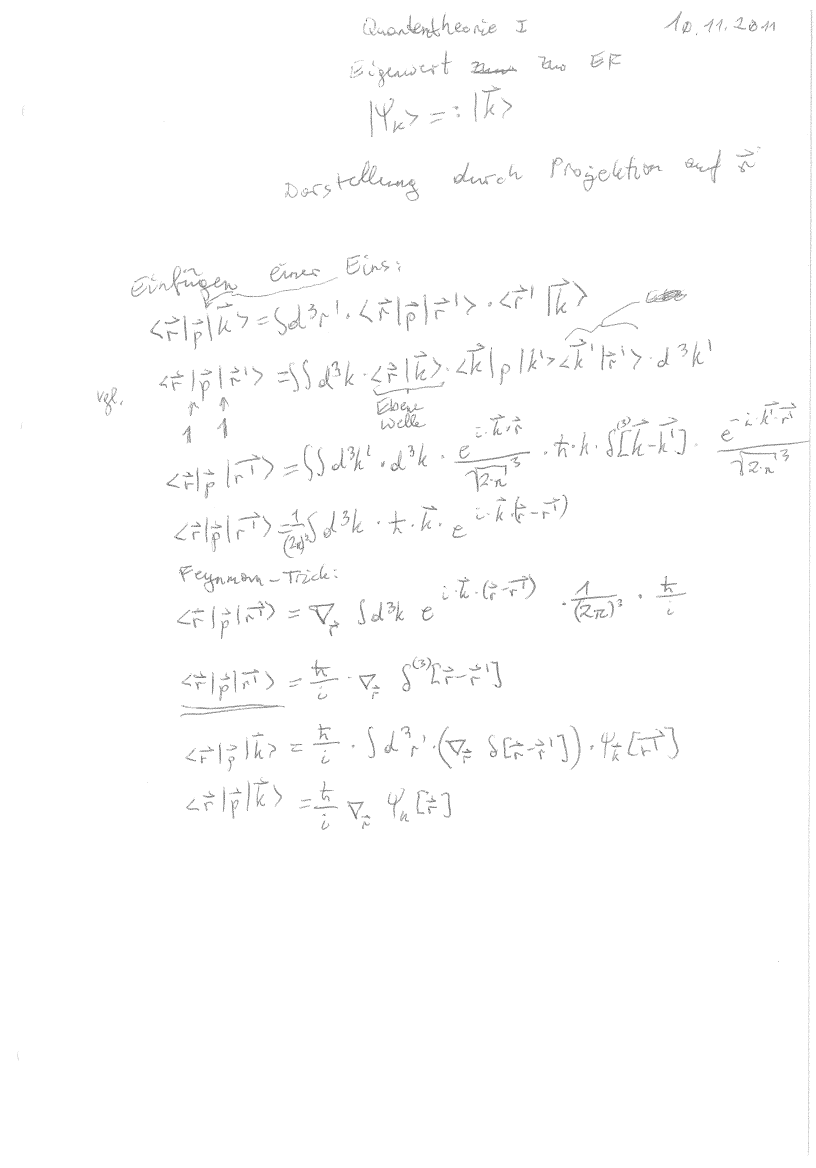 Quantentheorie I 10.11.2011
Eigenwert zur EF
|Ψ_k> =: |k⃗>
Darstellung durch Projektion auf r⃗
Einfügen einer Eins:
<r⃗|p⃗|k⃗> = ∫d³r' · <r⃗|p⃗|r⃗'> · <r⃗'|k⃗>
vgl. <r⃗|p⃗|r⃗'> = ∫∫ d³k · <r⃗|k⃗> · <k⃗|p|k'> <k⃗'|r⃗'> · d³k'
↑ ↑
1 1
Ebene
Welle
<r⃗|p⃗|r⃗'> = ∫∫ d³k' · d³k · e^{i·k⃗·r⃗}/√(2·π)³ · ħ · k · δ^(3)[k⃗-k⃗'] · e^{-i·k⃗'·r⃗'}/√(2·π)³
<r⃗|p⃗|r⃗'> = 1/(2π)³ ∫ d³k · ħ · k⃗ · e^{i·k⃗·(r⃗-r⃗')}
Feynman-Trick:
<r⃗|p⃗|r⃗'> = ∇_r⃗ ∫d³k e^{i·k⃗·(r⃗-r⃗')} · 1/(2π)³ · ħ/i
<r⃗|p⃗|r⃗'> = ħ/i · ∇_r⃗ δ^(3)[r⃗-r⃗']
<r⃗|p⃗|k⃗> = ħ/i · ∫ d³r' · (∇_r⃗ δ[r⃗-r⃗']) · Ψ_k⃗[r⃗']
<r⃗|p⃗|k⃗> = ħ/i ∇_r⃗ Ψ_k[r⃗]